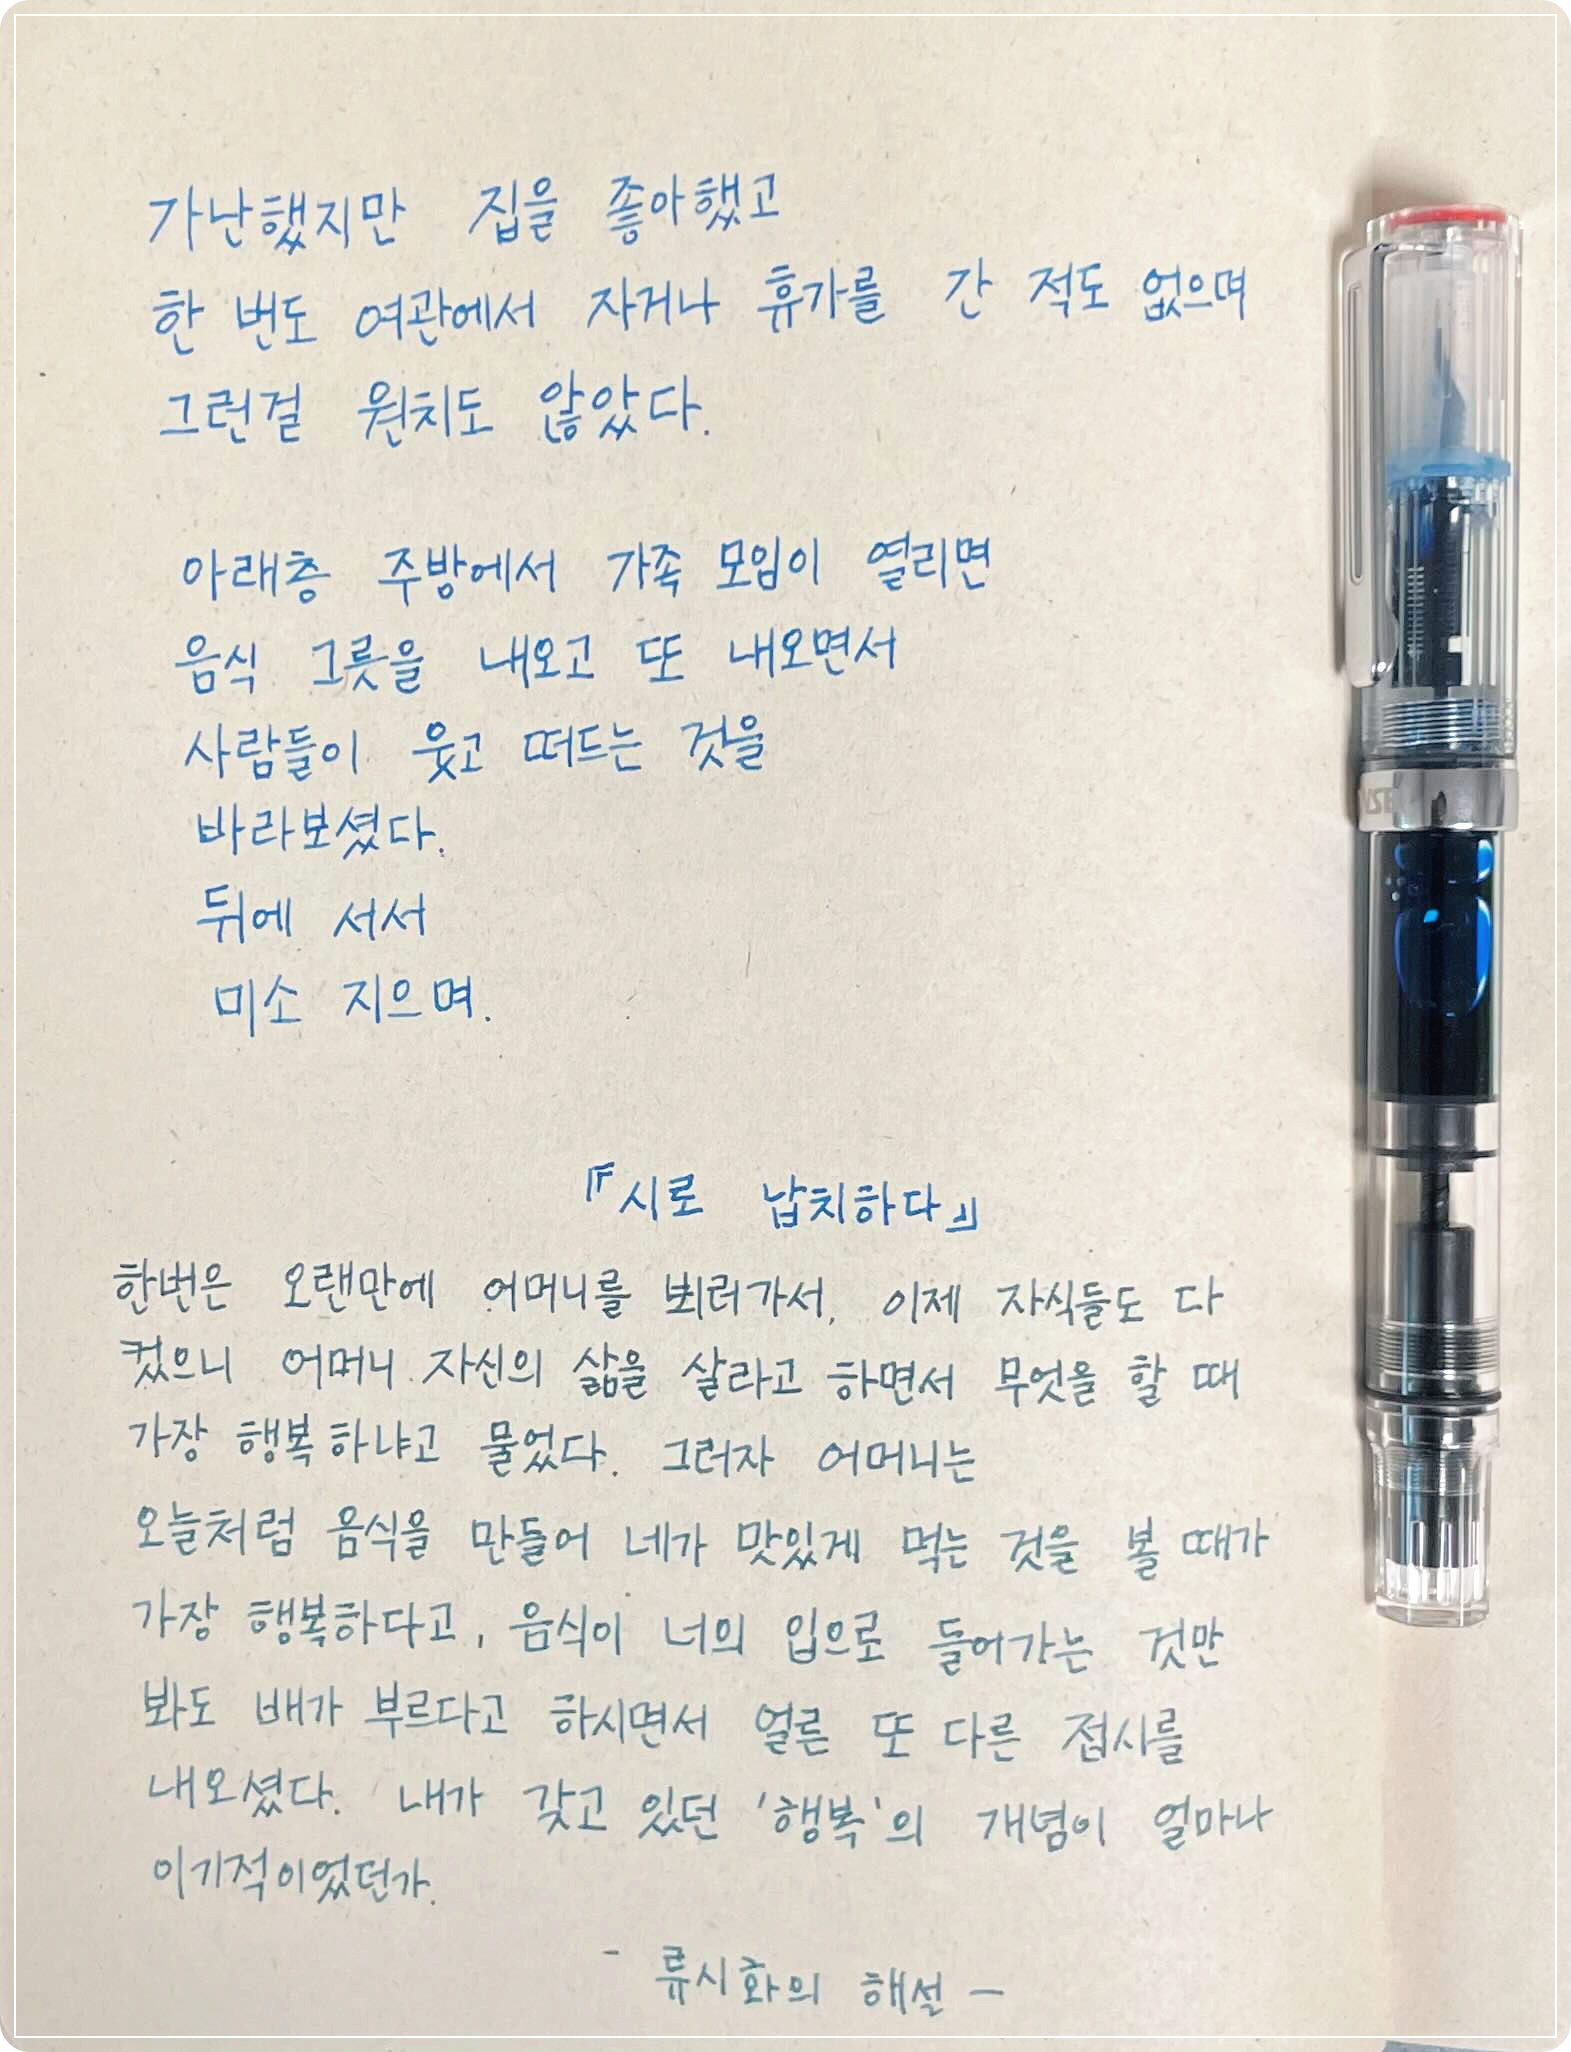 가난했지만 집을 좋아했고
한 번도 여관에서 자거나 휴가를 간 적도 없으며
그런걸 원치도 않았다.
아래층 주방에서 가족 모임이 열리면
음식 그릇을 내오고 또 내오면서
사람들이 웃고 떠드는 것을
바라보셨다.
뒤에 서서
미소 지으며.
『시로 납치하다』
한번은 오랜만에 어머니를 뵈러가서, 이제 자식들도 다
컸으니 어머니 자신의 삶을 살라고 하면서 무엇을 할 때
가장 행복하냐고 물었다. 그러자 어머니는
오늘처럼 음식을 만들어 네가 맛있게 먹는 것을 볼 때가
가장 행복하다고, 음식이 너의 입으로 들어가는 것만
봐도 배가 부르다고 하시면서 얼른 또 다른 접시를
내오셨다. 내가 갖고 있던 '행복'의 개념이 얼마나
이기적이었던가.
- 류시화의 해설 -